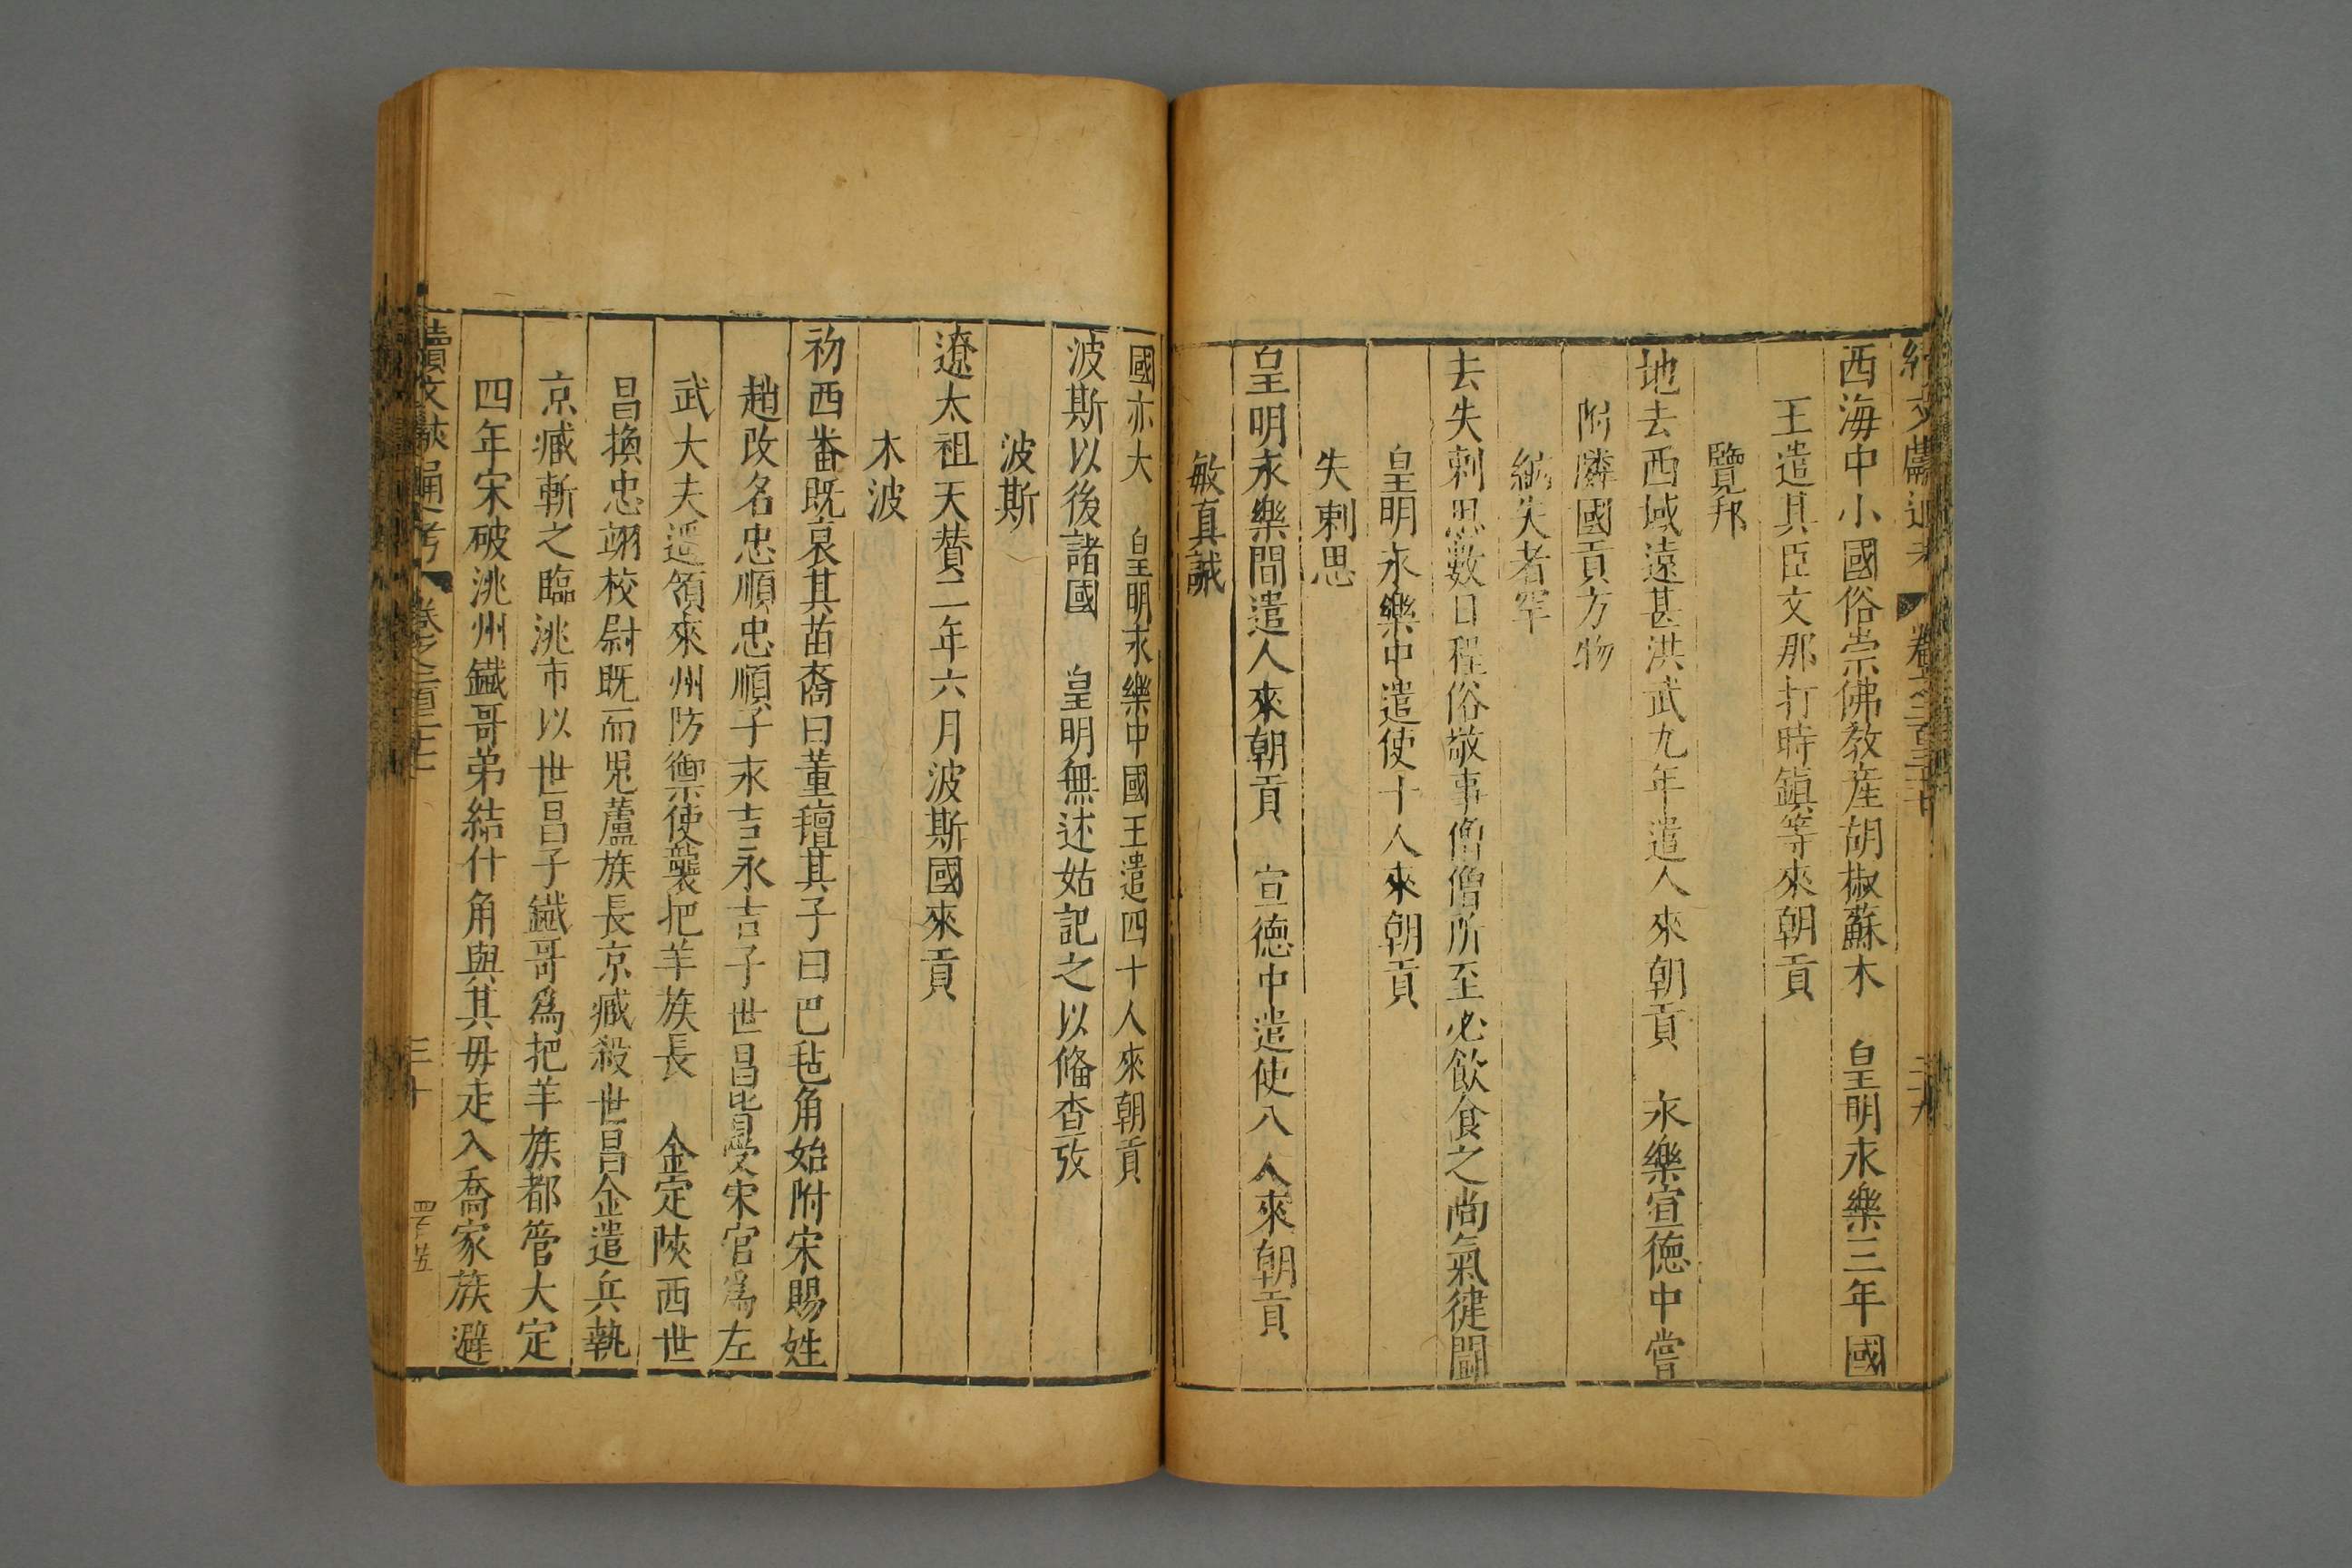 西海中小國俗崇佛教産胡椒蘇木　皇明永樂三年國
王遣其臣文那打時鎮等來朝貢
覽邦
地去西域遠甚洪武九年遣人來朝貢　永樂宣德中嘗
附隣國貢方物
失者罕
去失剌思數日程俗敬事僧僧所至必飲食之尚氣健鬬
皇明永樂中遣使十人來朝貢
失剌思
皇明永樂間遣人來朝貢　宣德中遣使八人來朝貢
敏真誠
國亦大　皇明永樂中國王遣四十人來朝貢
波斯以後諸國　皇明無述姑記之以俻查攷
波斯
遼太祖天賛二年六月波斯國來貢
木波
初西番既哀其苗裔曰董氊其子曰巴毡角始附宋賜姓
趙改名忠順忠順子永吉永吉子世昌皆受宋官爲左
武大夫遥領來州防禦使襲把羊族長　金定陝西世
昌換忠翊校尉既而鬼蘆族長京臧殺世昌金遣兵執
京臧斬之臨洮市以世昌子鐵哥爲把羊族都管大定
四年宋破洮州鐵哥弟結什角與其毋走入喬家族避
續文獻通考　卷之二百三十七　三十　四百五